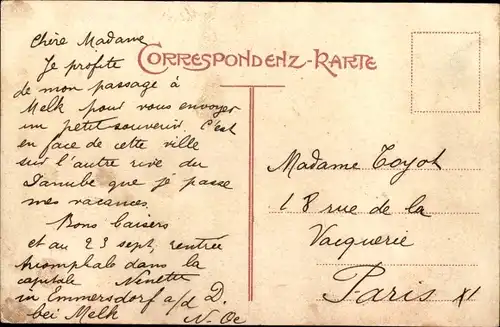 Chère Madame
CORRESPONDENZ-KARTE
Je profite
de mon passage à
Melk pour vous envoyer
un petit souvenir. C'est
en face de cette ville
sur l'autre rive du
Danube que je passe
mes vacances.
Bons baisers
et au 23 sept, rentrée
triomphale dans la
capitale Nenette
in Emmersdorf a/d D.
bei Melk N. Oe
Madame Toyot
18 rue de la
Vacquerie
Paris XI